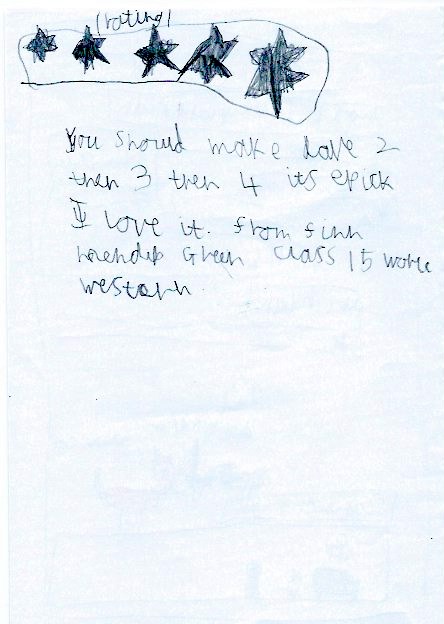 (rating)
You should make dave 2
then 3 then 4 its epick
I love it. from finn
mendip Green class 15 worle
western.